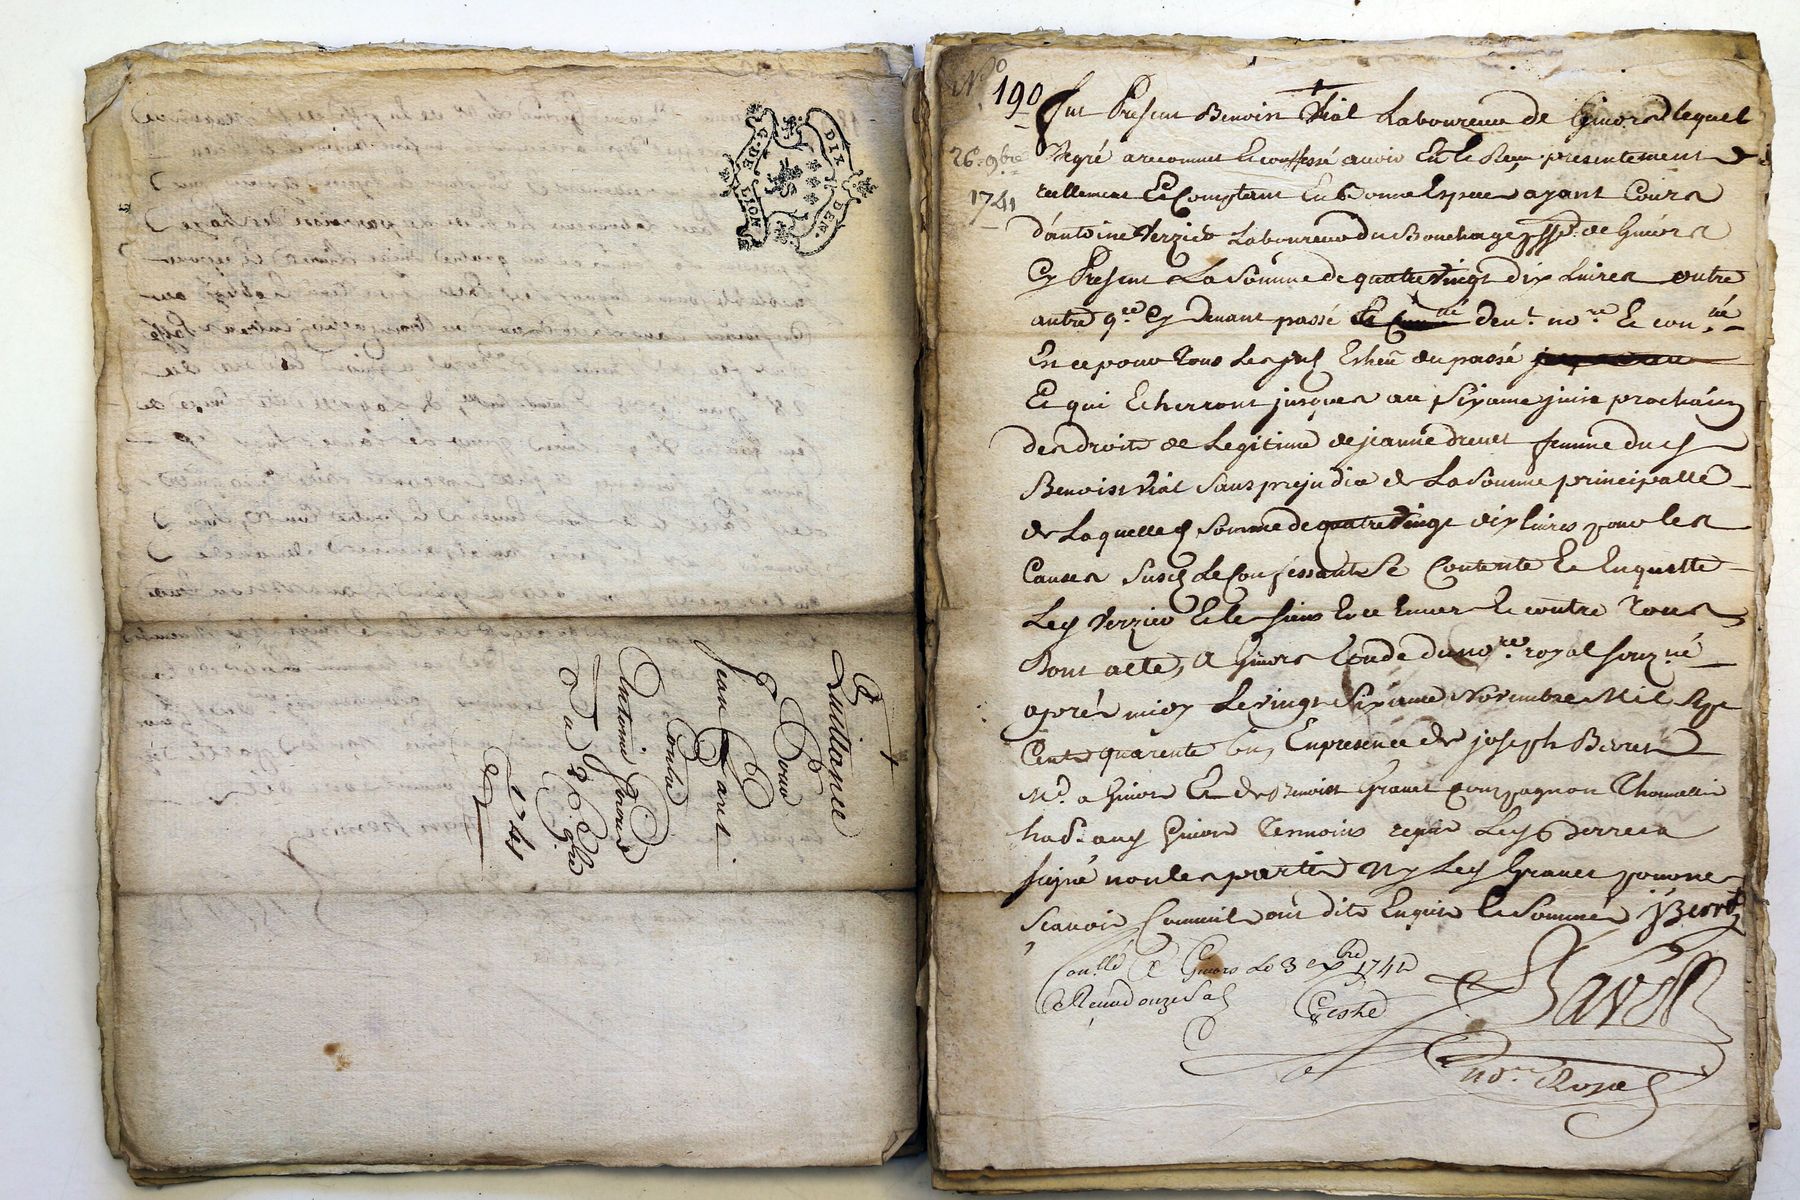 G. DE LION
DIX DEN.
Quittance
Pour
Jean
Contre
Antoine
Du 26 9bre
1741
N.o 190
26e 9bre
1741
Fut Present Benoist Vial Laboureur de Givors lequel
degré a reconnut Et confessé avoir Eu et Reçu presentement et
reellement Et Comptant En bonne Espece ayant Cours
d'antoine Verzieu Laboureur du Bouchage de Givors
Cy Present La Somme de quatre vingt dix Livres outre
autre qce Cy devant passé devt. nore. Et conné
Et ce pour Tous Les Echeu du passé
Et qui Echerront jusques au Sixame juin prochain
des droits de Legitime de jeanne drevet femme du d
Benoist Vial Sans prejudice de La Somme principalle
de Laquelle d Somme de quatre vingt dix livres pour les
Causes Susd Le Confessant Se Contente Et En quitte
Led Verzieu Et les Siens Envers Et contre Tous
Dont acte, A Givors Etude du nore. royal souzné
aprés midy Le vingt Sixame Novembre Mil Sept
Cent quarente un, En presence de joseph Berret
Md. a Givors Et de Benoist Gravet compagnon
habt. aud Givors Temoins requis Led Berret a
signé non les parties Ny Led Gravet pour ne
Scavoir Comm'il ont dit Enquis Et Sommés JBerret
Conllé A Givors Le 3e xbre 1741
Reçu douze Sols
nore. Royal